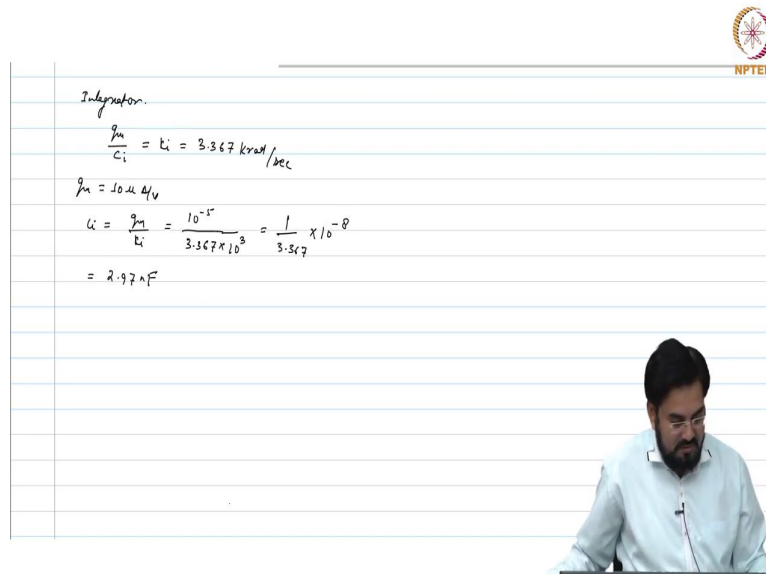 NPTEL
Integrator.
gm/Ci = ki = 3.367 krad/sec
gm = 10 μ A/V
Ci = gm/ki = 10^-5/3.367×10^3 = 1/3.367 × 10^-8
= 2.97 nF